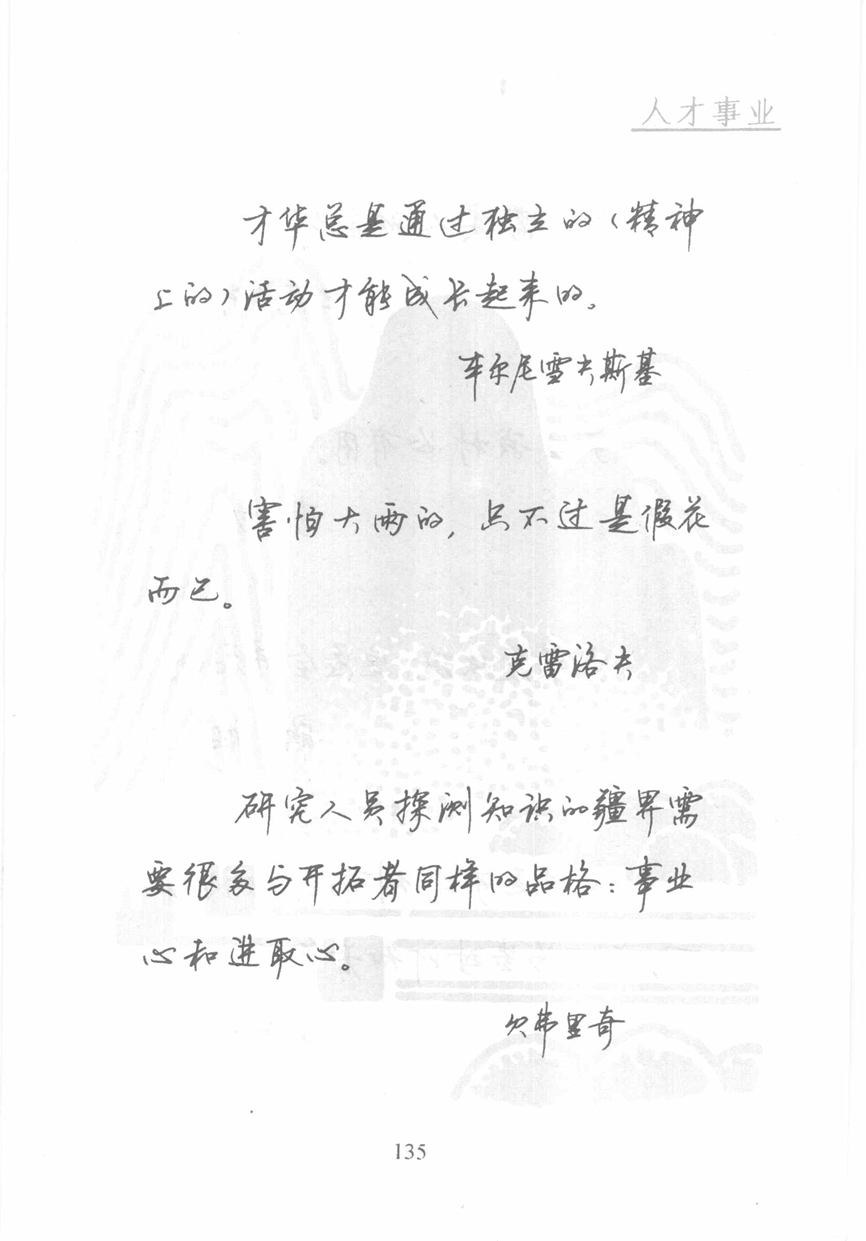 人才事业
才华总是通过独立的(精神
上的)活动才能成长起来的。
车尔尼雪夫斯基
害怕大雨的,只不过是假花
而已。
克雷洛夫
研究人员探测知识的疆界需
要很多与开拓者同样的品格:事业
心和进取心。
贝弗里奇
135